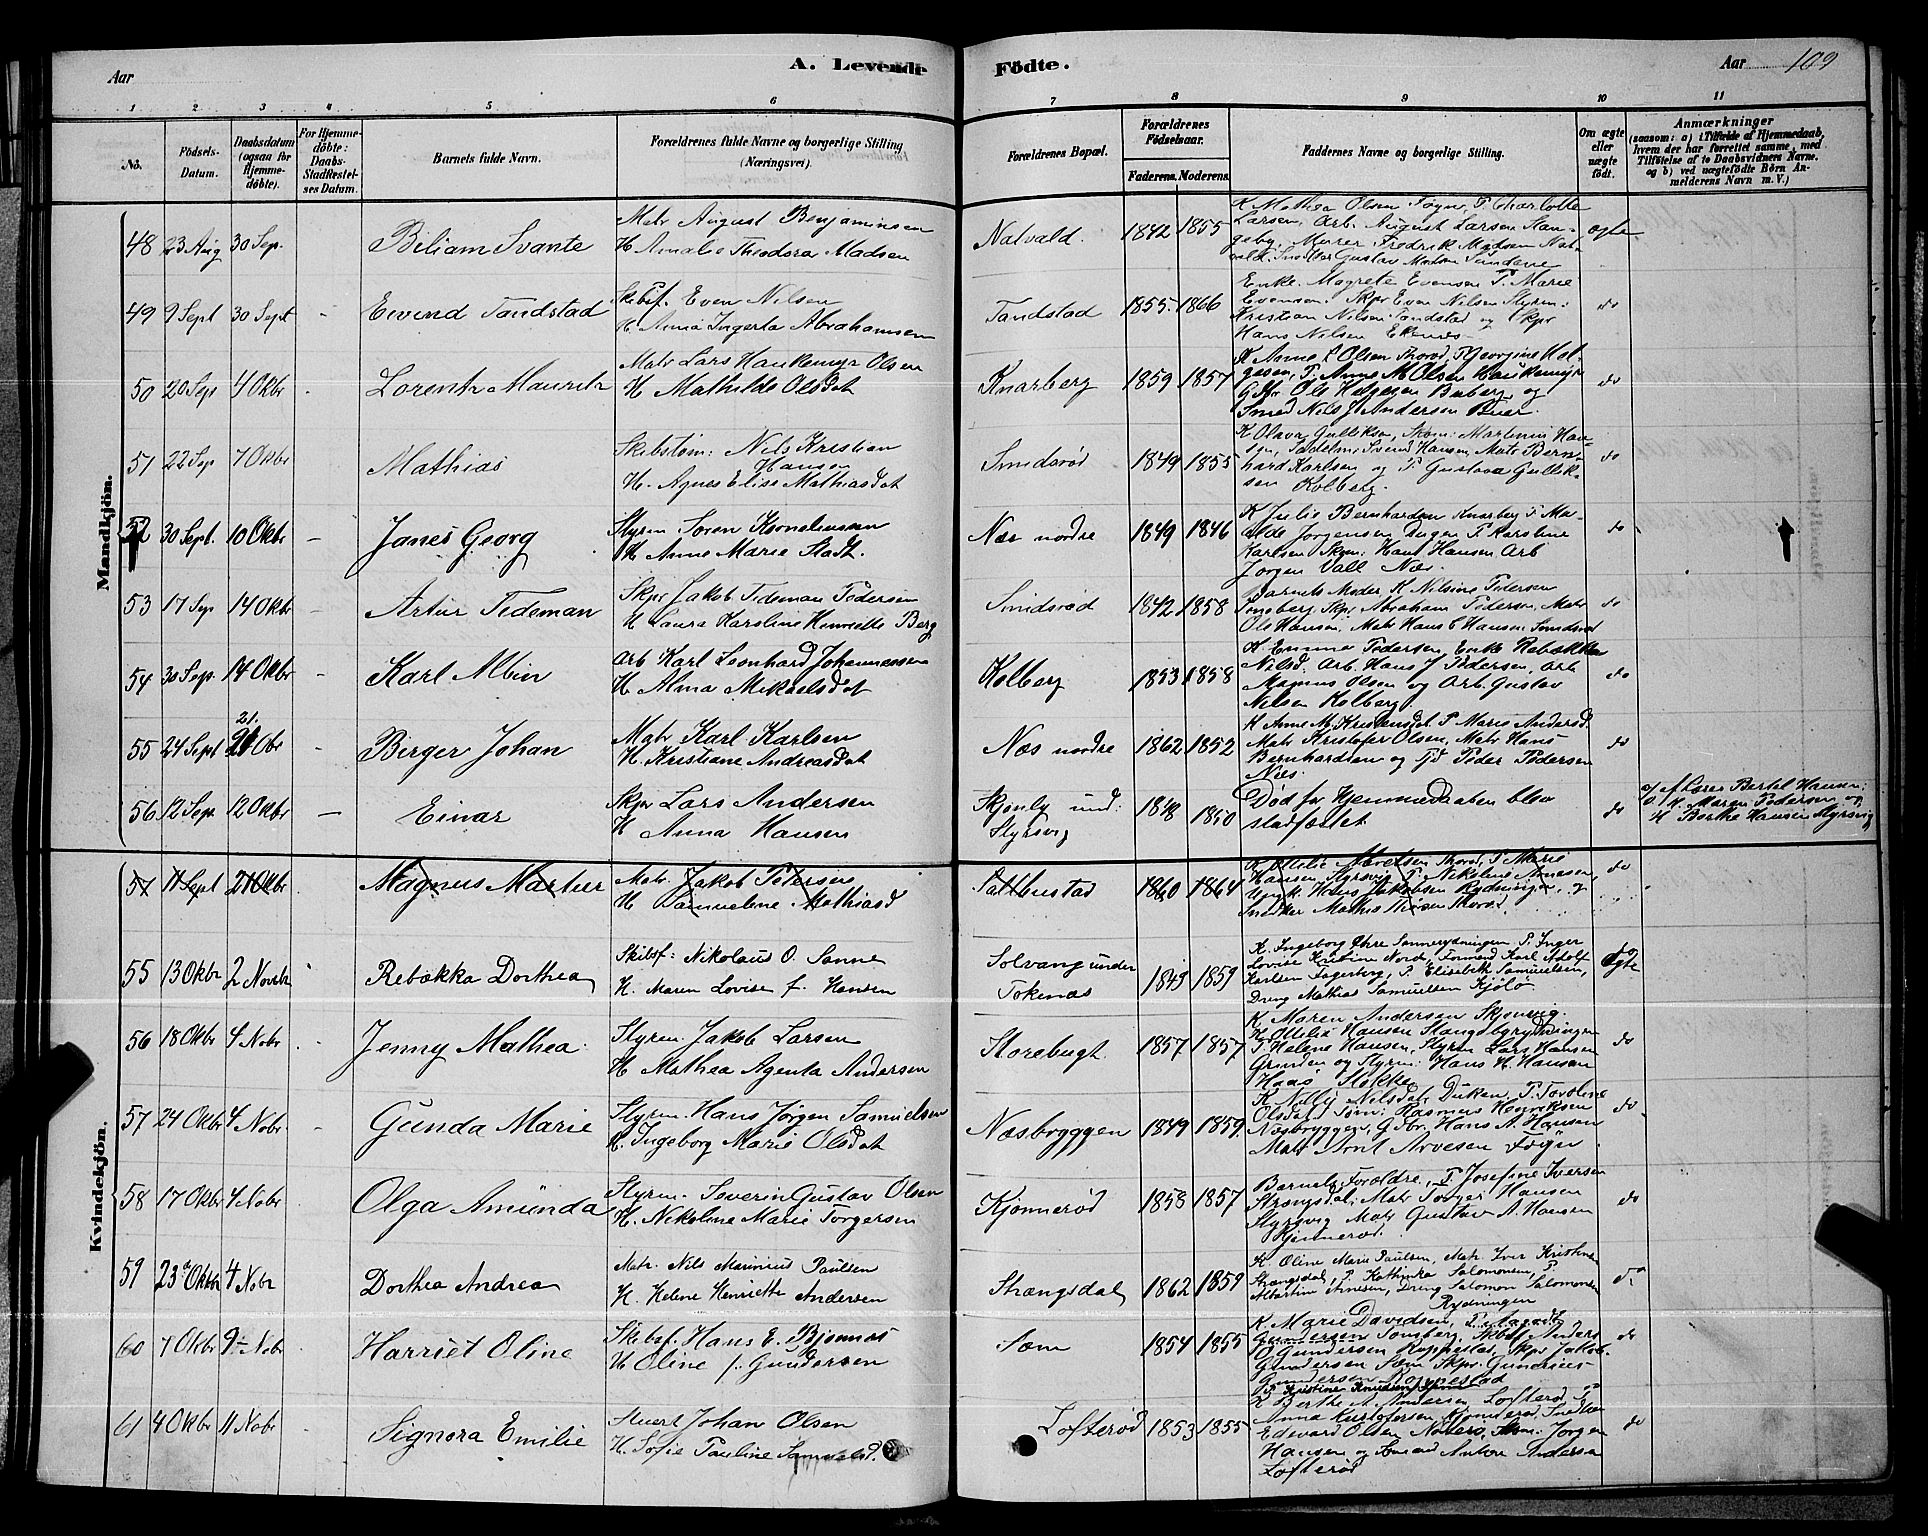 Aar
A. Levende
Födte.
Aar 109
1 2 3 4 5 6 7 8 9 10 11
No.
Födsels-Datum.
Daabsdatum (ogsaa for Hjemme-døbte).
For Hjemme-döbte: Daabs-Stadfæstel-ses Datum.
Barnets fulde Navn.
Forældrenes fulde Navne og borgerlige Stilling (Næringsvei).
Forældrenes Bopæl.
Forældrenes Födselsaar.
Faderens. Moderens.
Faddernes Navne og borgerlige Stilling.
Om ægte eller uægte födt.
Anmærkninger
(saasom: a) i Tilfælde af Hjemmedaab, hvem der har forrettet samme, med Tilföielse af to Daabsvidners Navne. og b) ved uægtefödte Börn An-melderens Navn m. V.)
Mandkjön.
48 23 Aug 30 Sep. Biliam Svante
Matr August Benjaminsen
H Amalie Theodora Madsen
Natvald. 1842 1855
K Mathea Olsen Fogn, P. Charlotte
Larsen, Arb. August Larsen
Murer Fredrik Madsen
Gustav Madsen Sundene
ægte
49 9 Sept 30 Sept - Eivind Tandstad
Skibsf. Even Nilsen
H. Anna Ingerta Abrahamsen
Tandstad 1855. 1866
Enke. Magrete Evensen P. Marie
Evensen. Skpr Even Nilsen Styrm:
Kristian Nilsen Tandstad og Skpr
Hans Nilsen Ekenes
do
50 20 Sep 4 Okbr - Lorents Maurits
Matr Lars Haukemyr Olsen
H Mathilde Olsdat
Knarberg 1859 1857
K Anne L Olsen Thorød, P Georgine Hol-
gesen, P. Anne M Olsen Haukemyr
Gbr Ole Holgesen Buberg og
Smed Nils J Andersen Buer.
do
51 22 Sep 7 Okbr Mathias
Skibstøm: Nils Kristian
Hansen
H. Agnes Elise Mathiasdat
Smidsrød 1849 1855
K Olava Gulliksen, Skom: Martinius Han-
sen, Sadelm. Svend Hansen, Matr Bern-
hard Karlsen og P Gustava Gullik-
sen Kolberg.
do
52 30 Sept. 10 Okbr - Janes Georg
Styrm Søren Korneliussen
H Anne Marie Stadt.
Nær nordre 1849 1846
K Julie Bernhardsen Knarberg P Ma-
tilde Jørgensen P Karoline
Karlsen Skpr: Hans Hansen Arb
Jørgen Vall Nær.
do
53 17 Sep 14 Okbr - Artur Tedeman
Skpr Jakob Tideman Pedersen
H Laura Karoline Henriette Berg
Smidsrød 1842 1858
Barnets Moder, K Nilsine Pedersen
Tønsberg, Skpr Abraham Pedersen, Matr
Ole Hansen, Matr Hans C Hansen Smidsrød
do
54 30 Sep. 14 Okbr - Karl Albin
Arb Karl Leonhard Johannessen
H Alma Mikaelsdat
Kolberg 1853 1858
K. Emma Pedersen, Enke Rebækka
Nilsd. Arb. Hans J Pedersen, Arb
Magnus Olsen og Arb. Gustav
Nilsen Kolberg
do
21.
55 24 Sept 21 Obr - Birger Johan
Matr Karl Karlsen
H. Kristiane Andreasdat
Næs nordre 1862 1852
K Anne M. Kristensdat. P Maria Andersd.
Matr Kristofer Olsen, Matr Hans
Bernhardsen og Tjd Peder Pedersen
Næs.
do
56 12 Sep. 12 Okbr - Einar
Skpr Lars Andersen
H Anna Hansen
Skjenly und:
Styrsvig
1848 1850
Død før Hjemmedaaben blev
stadfæstet
do
a) af Lars Bertel Hansen
K. Maren Pedersen og
H Berthe Hansen Styrsvig
57 11 Sept 21 Okbr Magnus Martin
Matr. Jakob Petersen
H Samueline Mathiasd
Salthustad 1860 1864
Hansen, Styrsvig P Nikoline Arnesen
Hans Jakobsen Rydningen, og
Snedker Mathis Thorød
do
Kvindekjön.
55 13 Okbr 2 Novbr - Rebækka Dorthea
Skibsf: Nikolaus O. Sanne
H. Maren Lovise f. Hansen
Solvang under
Tokenæs
1843 1859
K. Ingeborg Ehre Sannerydningen P. Inger
Lovise Kristine Nord, Formand Karl Adolf
Karlsen Fagerberg, P. Elisabeth Samuelsen,
Dreng Mathias Samuelsen Kjølø
Ægte
56 18 Okbr 4 Nobr - Jenny Mathea
Styrm. Jakob Larsen
H Mathea Agenta Andersen
Storebugt 1857 1857
K Maren Andersen Skjonvig.
K Ottilia Hansen Stangebyrydningen
P Helene Hansen, Styrm Lars Hansen
Grinden og Styrm: Hans H. Hansen
Haas Stokke
do
57 24 Okbr 4 Nobr - Gunda Marie
Styrm. Hans Jørgen Samuelsen
H. Ingeborg Marie Olsdat
Næsbryggen 1849 1859.
K Nelly Nilsdat, Duken, P. Taroline
Olsdat Tøm: Rasmus Henriksen
Næsbryggen, Gdbr. Hans A. Hansen
Matr Arnt Arvesen Fogn
do
58 17 Okbr 4 Nobr Olga Amunda
Styrm. Severin Gustav Olsen
H. Nikoline Marie Torgersen
Kjønnerød 1858 1857
Barnets Forældre, P. Josefine Iversen
Strengsdal, Matr Torger Hansen
Styrsvig Matr Gustav A. Hansen
Kjønnerød.
do
59 23 Okbr 4 Nobr Dorthea Andrea
Matr. Nils Marinius Paulsen
H. Helene Henriette Andersen
Strængsdal 1862 1859
K. Oline Marie Paulsen, Matr. Iver Kristensen
Strængsdal, P. Kathinka Salomonsen, P
Albertine Arnesen, Dreng Salomon Salomonsen
Rydningen
do
60 7 Okbr 9 Nobr Harriet Oline
Skibsf. Hans E. Bjønnes
H Oline f. Gundersen
Sæm 1854 1855
K. Marie Davidsen, P. Aagot
Gundersen Tønsberg, Skibsf Anders
O Gundersen Roppestad, Skpr Jakob
Gundersen Sæm Skpr. Gunerius
Gundersen Roppestad
do
61 4 Okbr 11 Nobr Signora Emilie
Muerr Johan Olsen
H. Sofie Pauline Samuelsd.
Lofterød 1853 1855
P Kristine Knudsen
K Berthe A Andersen Lofterød P
Anna Kristofersen Kjønnerød, Snedker
Edevard Olsen Nøtterø, Jørgen
Hansen og Anton Andersen
Lofterød
do